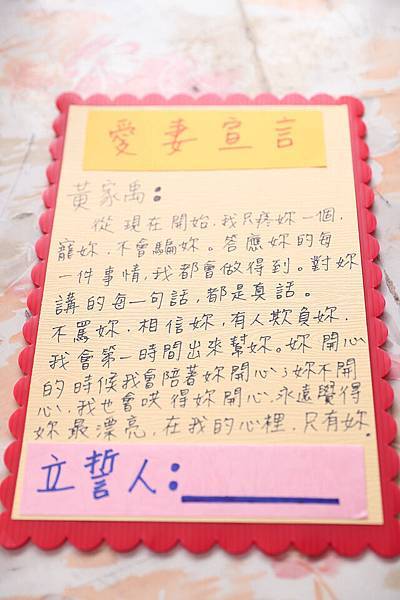 愛妻宣言
黃家禹：
從現在開始，我只疼妳一個，
寵妳，不會騙妳。答應妳的每
一件事情，我都會做得到。對妳
講的每一句話，都是真話。
不罵妳，相信妳，有人欺負妳，
我會第一時間出來幫妳。妳開心
的時候我會陪著妳開心；妳不開
心，我也會哄得妳開心。永遠覺得
妳最漂亮，在我的心裡，只有妳。
立誓人：